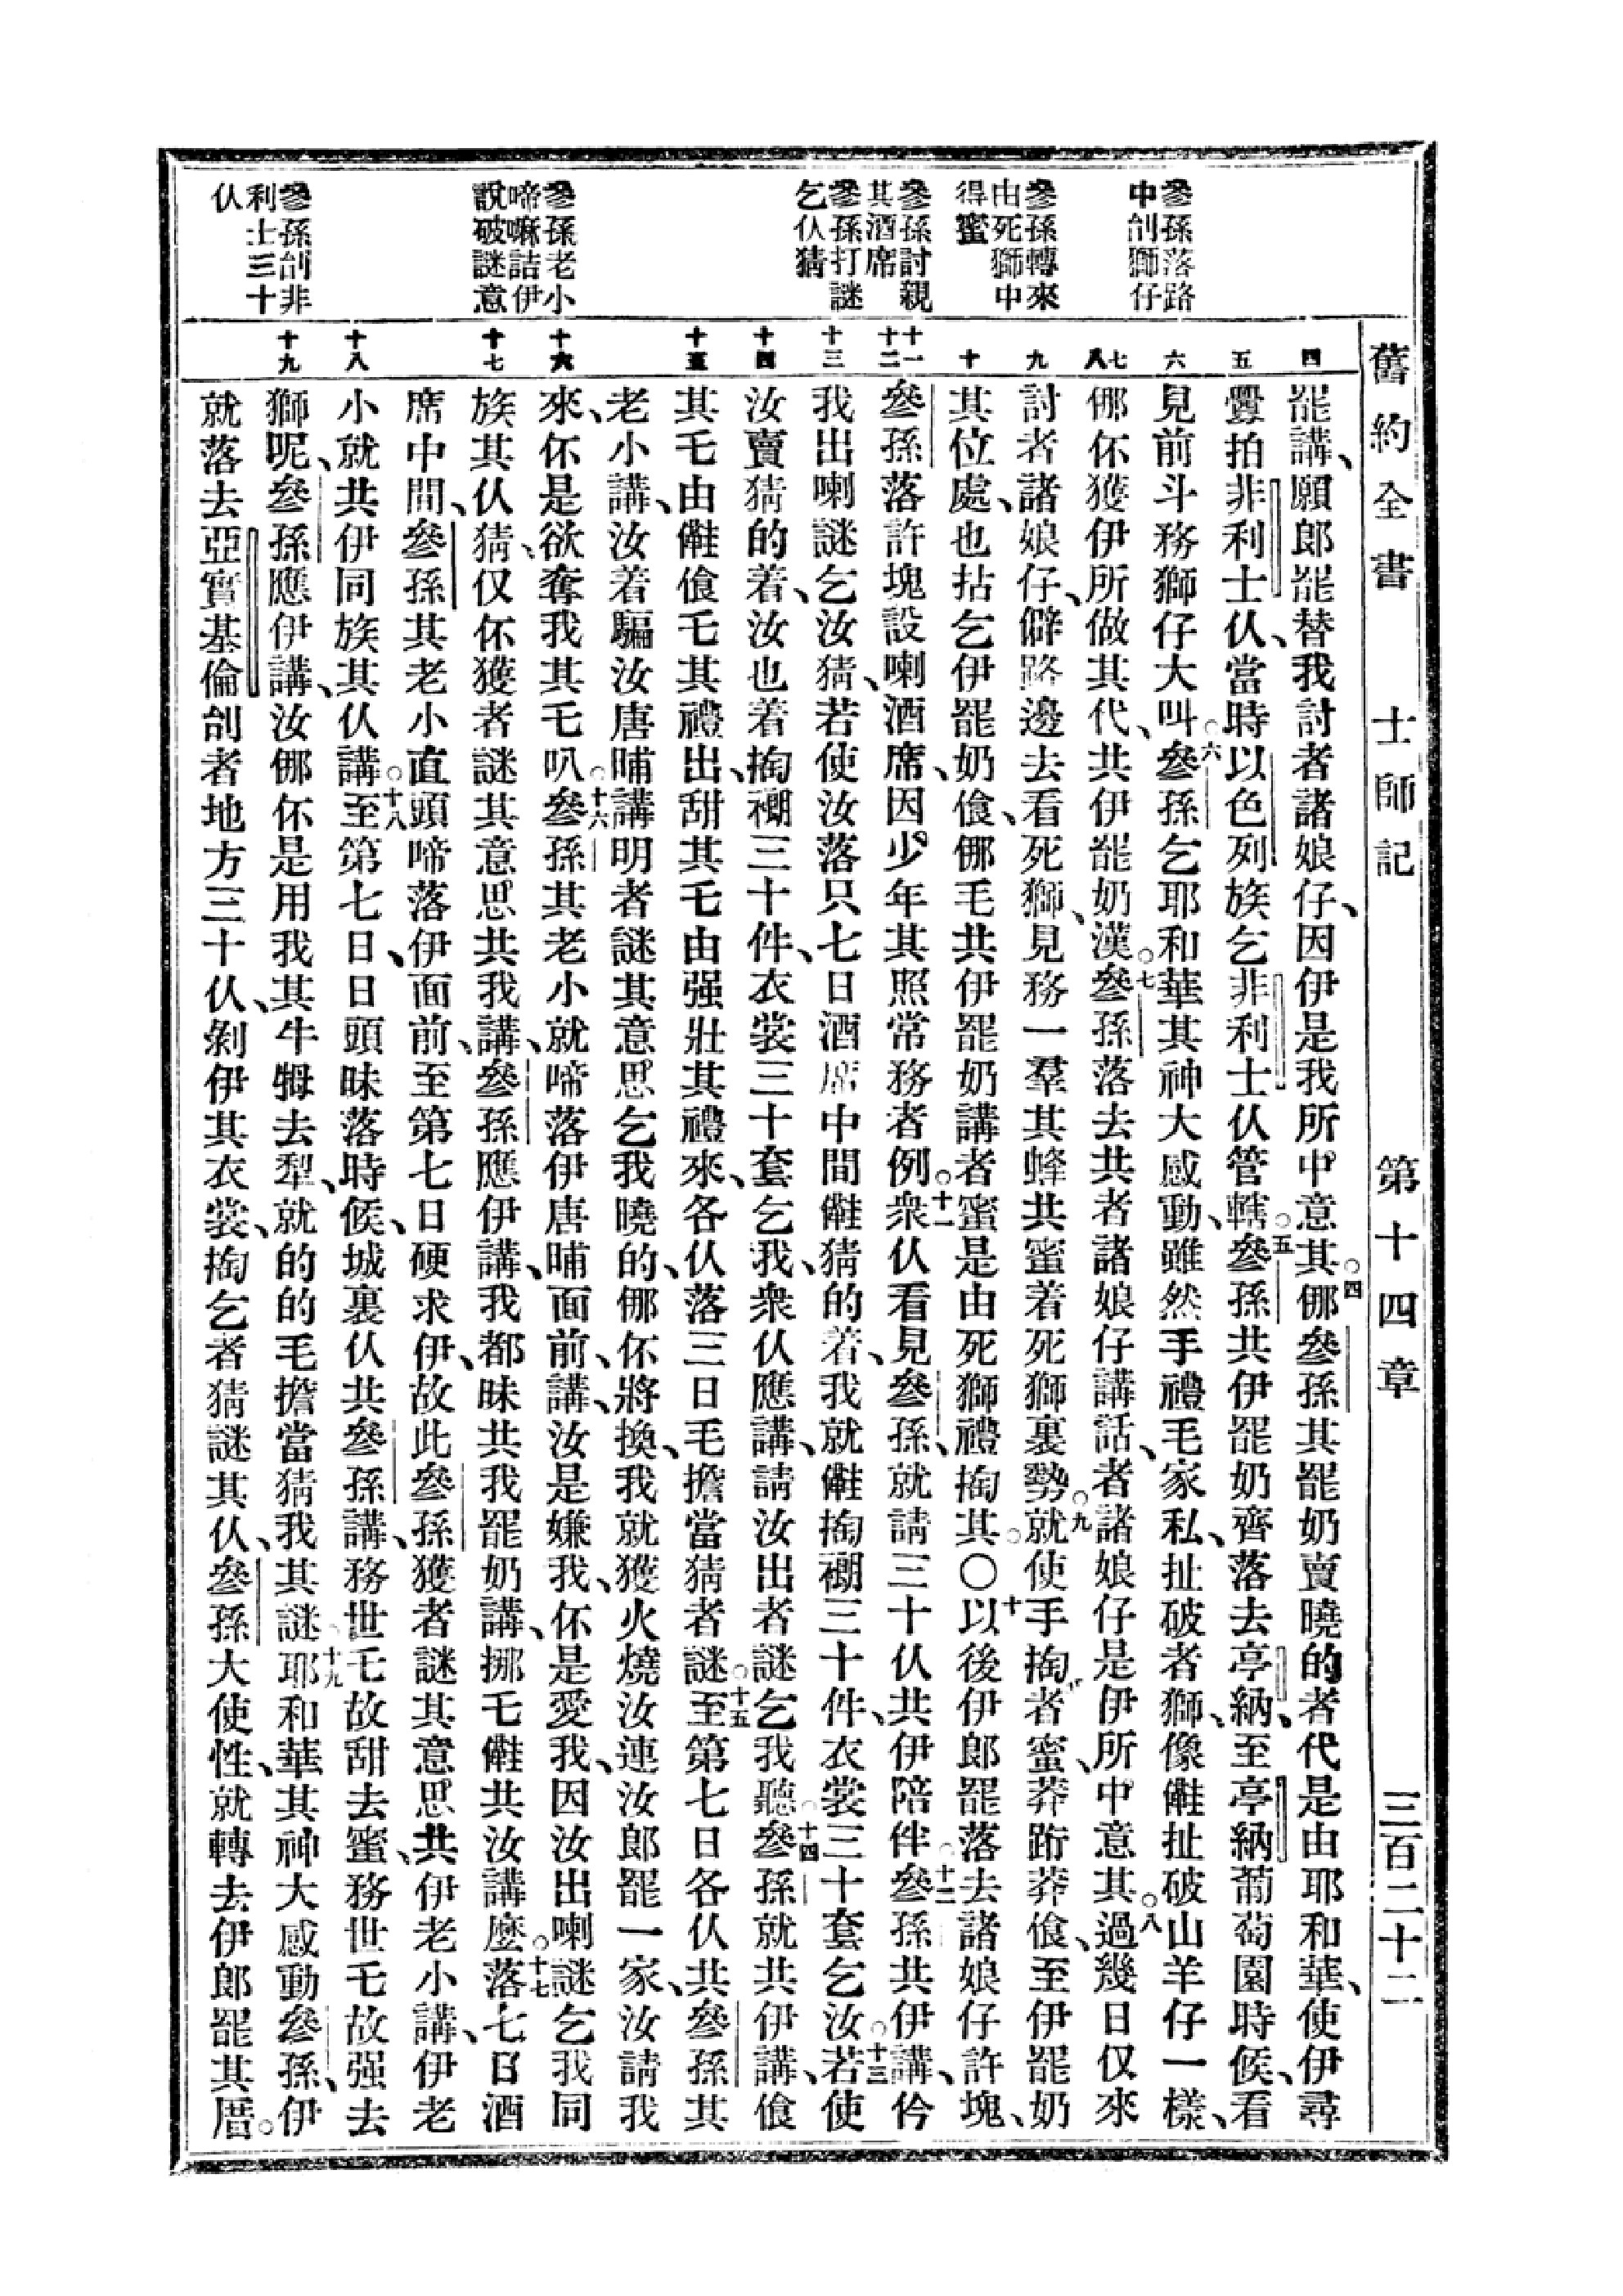 舊約全書　士師記　第十四章　三百二十二
參孫落路
中刣獅仔
參孫轉來
由死獅中
得蜜
參孫討親
其酒席
參孫打謎
乞仈猜
參孫老小
啼嘛詰伊
說破謎意
參孫刣非
利士三十
仈
四
五
六
七
八
九
十
十一
十二
十三
十四
十五
十六
十七
十八
十九
罷講、願郎罷替我討者諸娘仔、因伊是我所中意其○四㑚參孫其罷奶賣曉的者代是由耶和華、使伊尋
釁拍非利士仈、當時以色列族乞非利士仈管轄○五參孫共伊罷奶齊落去亭納、至亭納葡萄園時候、看
見前斗務獅仔大叫○六參孫乞耶和華其神大感動、雖然手禮毛家私、扯破者獅、像扯破山羊仔一樣、
㑚伓獲伊所做其代、共伊罷奶漢○七參孫落去共者諸娘仔講話、者諸娘仔是伊所中意其○八過幾日仅來
討者諸娘仔、僻路邊去看死獅、見務一羣其蜂共蜜着死獅裏勢○九就使手掏者蜜、莽莽飡、至伊罷奶
其位處、也拈乞伊罷奶飡、㑚毛共伊罷奶講者蜜是由死獅禮掏其○〇十以後伊郎罷落去諸娘仔許塊、
參孫落許塊設喇酒席、因少年其照常務者例○十一衆仈看見參孫、就請三十仈、共伊陪伴○十二參孫共伊講、仱
我出喇謎乞汝猜、若使汝落只七日酒席中間猜的着、我就掏三十件、衣裳三十套乞汝○十三若使
汝賣猜的着、汝也着掏三十件、衣裳三十套乞我、衆仈應講、請汝出者謎乞我聽○十四參孫就共伊講、飡
其乇由飡乇其禮出、甜其乇由强壯其禮來、各仈落三日毛擔當猜者謎○十五至第七日各仈共參孫其
老小講、汝着騙汝唐晡講明者謎其意思乞我曉的、㑚伓將換、我就獲火燒汝連汝郎罷一家、汝請我
來、伓是欲奪我其乇叭○十六參孫其老小就啼落伊唐晡面前、講、汝是嫌我、伓是愛我、因汝出喇謎乞我同
族其仈猜、仅伓獲者謎其意思共我講、參孫應伊講、我都昧共我罷奶講、挪毛共汝講麽○十七落七日酒
席中間、參孫其老小直頭啼落伊面前、至第七日硬求伊、故此參孫獲者謎其意思共伊老小講、伊老
小就共伊同族其仈講○十八至第七日、日頭昧落時候、城裏仈共參孫講、務世乇故甜去蜜、務世乇故强去
獅呢、參孫應伊講、汝㑚伓是用我其牛牳去犁、就的的毛擔當猜我其謎○十九耶和華其神大感動參孫、伊
就落去亞實基倫刣者地方三十仈、剝伊其衣裳、掏乞者猜謎其仈、參孫大使性、就轉去伊郎罷其厝○